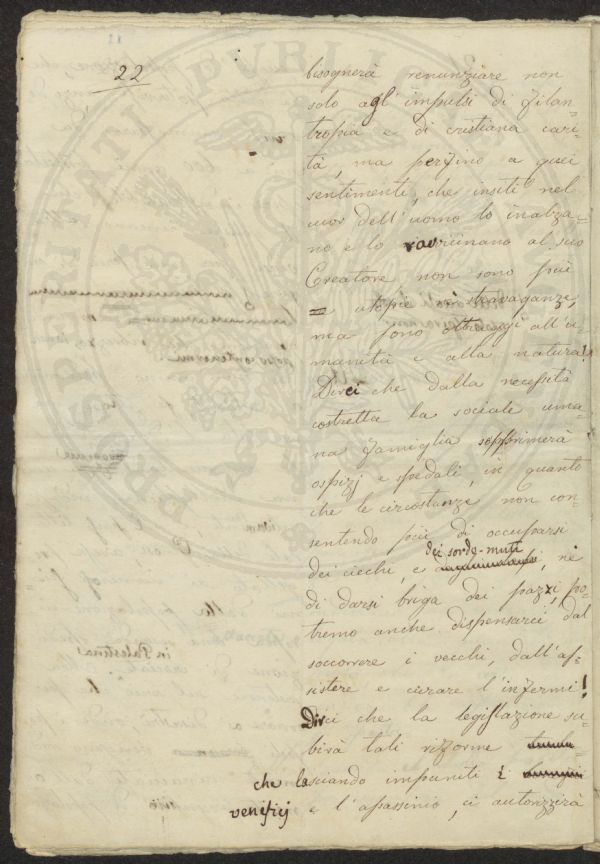 22
bisognerà renunziare non
solo agl'impulsi di filan=
tropia e di cristiana cari=
tà, ma perfino a quei
sentimenti, che insiti nel
cuor dell'uomo lo inalza=
no e lo ravvicinano al suo
Creatore non sono più
= utopie i stravaganze,
ma sono oltraggi all'u=
manità e alla natura!
Dirci che dalla necessità
costretta la sociale uma=
na famiglia sopprimerà
ospizj e spedali, in quanto
che le circostanze non con=
sentendo più di occuparsi
dei ciechi, e dei sordo-muti, nè
di darsi briga dei pazzi, po=
tremo anche dispensarci dal
soccorrere i vecchi, dall'as=
sistere e curare l'infermi!
Dirci che la legislazione su=
birà tali riforme
che lasciando impuniti i
venefizj e l'assassinio, ci autorizzerà
in Palestina!